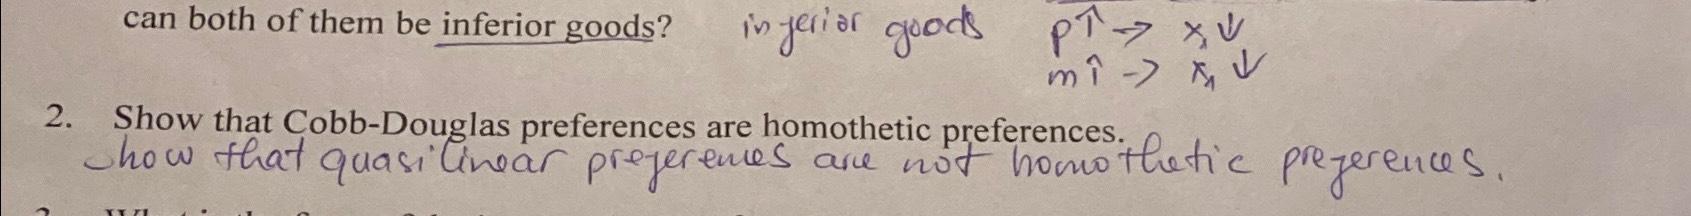 can both of them be inferior goods? inferior goods p↑ → x₁↓
m↑ → x₁↓
2. Show that Cobb-Douglas preferences are homothetic preferences.
Show that quasilinear preferences are not homothetic preferences.